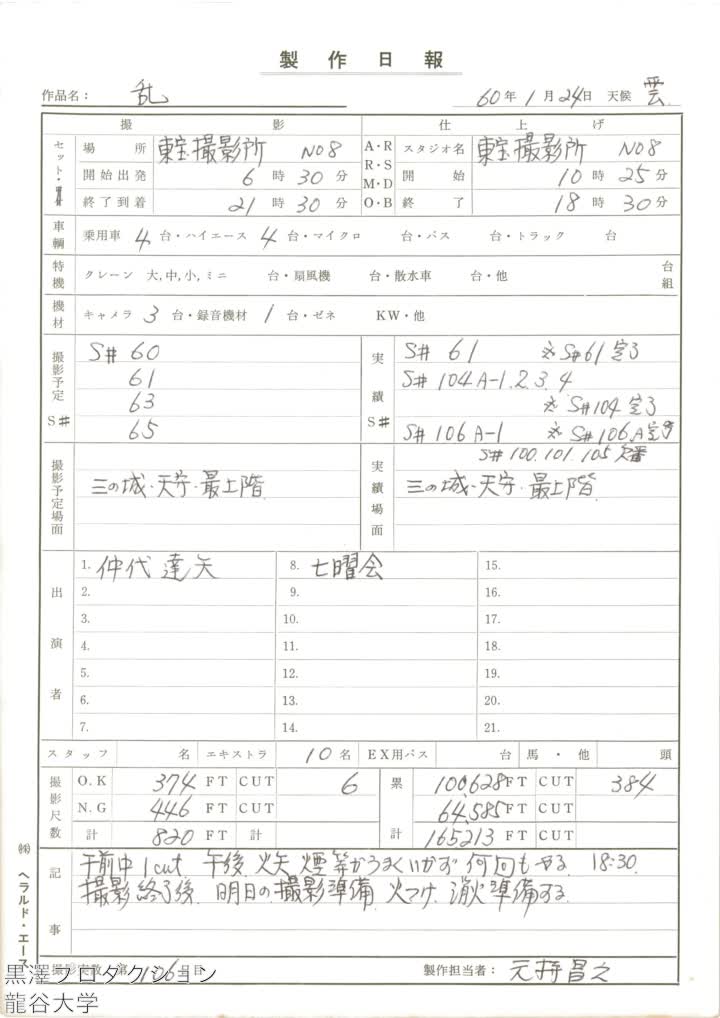 製作日報
作品名： 乱 60年1月24日 天候 雲
撮影 仕上げ
セット・ 場所 東宝撮影所 No8 A・R R・S M・D O・B スタジオ名 東宝撮影所 No8
開始出発 6時30分 開始 10時25分
終了到着 21時30分 終了 18時30分
車輌 乗用車 4台・ハイエース 4台・マイクロ 台・バス 台・トラック 台
特機 クレーン 大,中,小,ミニ 台・扇風機 台・散水車 台・他 台組
機材 キャメラ 3台・録音機材 1台・ゼネ KW・他
撮影予定 S# 実績 S#
S# 60 S# 61 S#61完了
61 S# 104A-1.2.3.4
63 S#104完了
65 S# 106A-1 S#106A完了
S#100.101.105欠番
撮影予定場面 三の城・天守・最上階 実績場面 三の城・天守・最上階
出演者
1. 仲代達矢 8. 七曜会 15.
2. 9. 16.
3. 10. 17.
4. 11. 18.
5. 12. 19.
6. 13. 20.
7. 14. 21.
スタッフ 名 エキストラ 10名 EX用バス 台 馬・他 頭
撮影尺数 O.K 374 FT CUT 6 累計 100,628 FT CUT 384
N.G 446 FT CUT 64,585 FT CUT
計 820 FT 計 165213 FT
記事 午前中1cut 午後、火矢 煙等がうまくいかず 何回もやる、18:30.
撮影終了後、明日の撮影準備、火つけ、消火準備する
撮影実数 第106日目 製作担当者： 元持昌之
㈱ ヘラルド・エース
黒澤プロダクション
龍谷大学